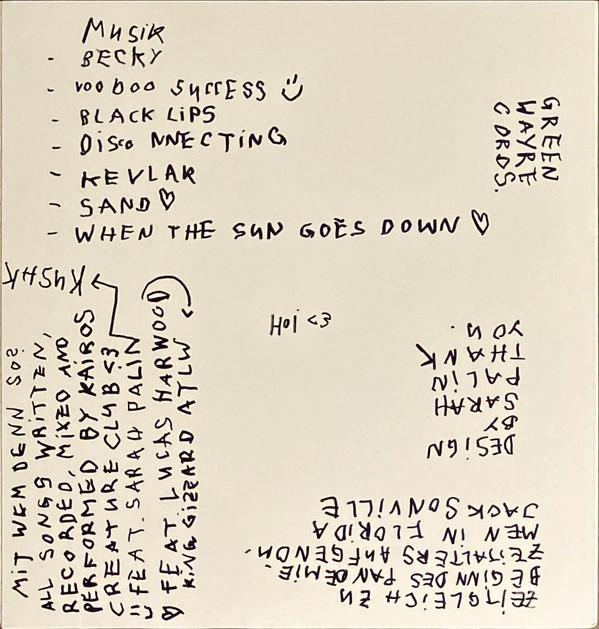 MUSIK
- BECKY
- VOODOO SUCCESS
- BLACK LiPS
- DISCO NNECTING
- KEVLAR
- SAND ♡
- WHEN THE SUN GOES DOWN ♡
GREEN
WAYRE
CORDS.
Hoi <3
KUSHK
MIT WEM DENN SOS
ALL SONGS WRITTEN,
RECORDED, MIXED AND
PERFORMED BY KAIROS
CREATURE CLUB <3
FEAT. SARAH PALIN
♡ FEAT LUCAS HARWOOD
KING GIZZARD ATLW
DESIGN
BY
SARAH
PALIN
THANK
YOU.
ZEITGLEICH ZU
BEGINN DES PANDEMIE.
ZEITALTERS AUFGENOM.
MEN IN FLORIDA
JACKSONVILLE